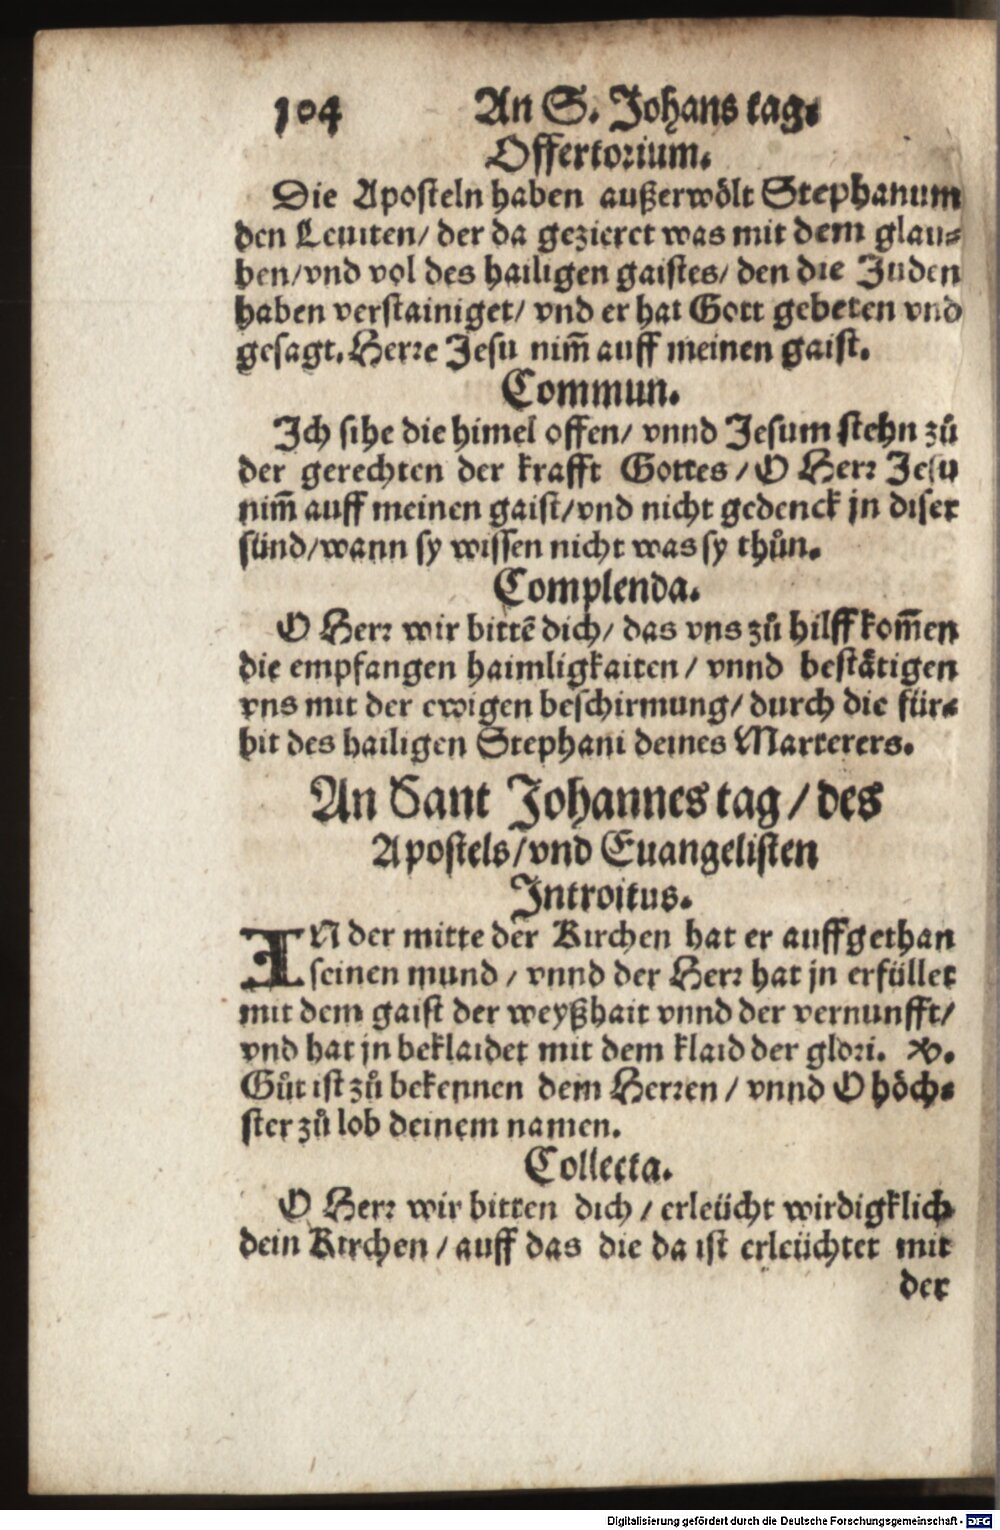 104 An S. Johans tag.
Offertorium.
Die Aposteln haben außerwölt Stephanum
den Leuiten/ der da gezieret was mit dem glau⸗
ben/vnd vol des hailigen gaistes/ den die Juden
haben verstainiget/ vnd er hat Gott gebeten vnd
gesagt. Herre Jesu nim̄ auff meinen gaist.
Commun.
Ich sihe die himel offen/ vnnd Jesum stehn zů
der gerechten der krafft Gottes / O Herr Jesu
nim̄ auff meinen gaist/vnd nicht gedenck jn diser
sünd/wann sy wissen nicht was sy thůn.
Complenda.
O Herr wir bittē dich/ das vns zů hilff kom̄en
die empfangen haimligkaiten / vnnd bestätigen
vns mit der ewigen beschirmung/ durch die für⸗
bit des hailigen Stephani deines Marterers.
An Sant Johannes tag / des
Apostels/vnd Euangelisten
Introitus.
IN der mitte der Kirchen hat er auffgethan
seinen mund / vnnd der Herr hat jn erfüllet
mit dem gaist der weyßhait vnnd der vernunfft/
vnd hat jn beklaidet mit dem klaid der glori. ℣.
Gůt ist zů bekennen dem Herren / vnnd O höch⸗
ster zů lob deinem namen.
Collecta.
O Herr wir bitten dich / erleücht wirdigklich
dein Kirchen / auff das die da ist erleüchtet mit
der
Digitalisierung gefördert durch die Deutsche Forschungsgemeinschaft - DFG